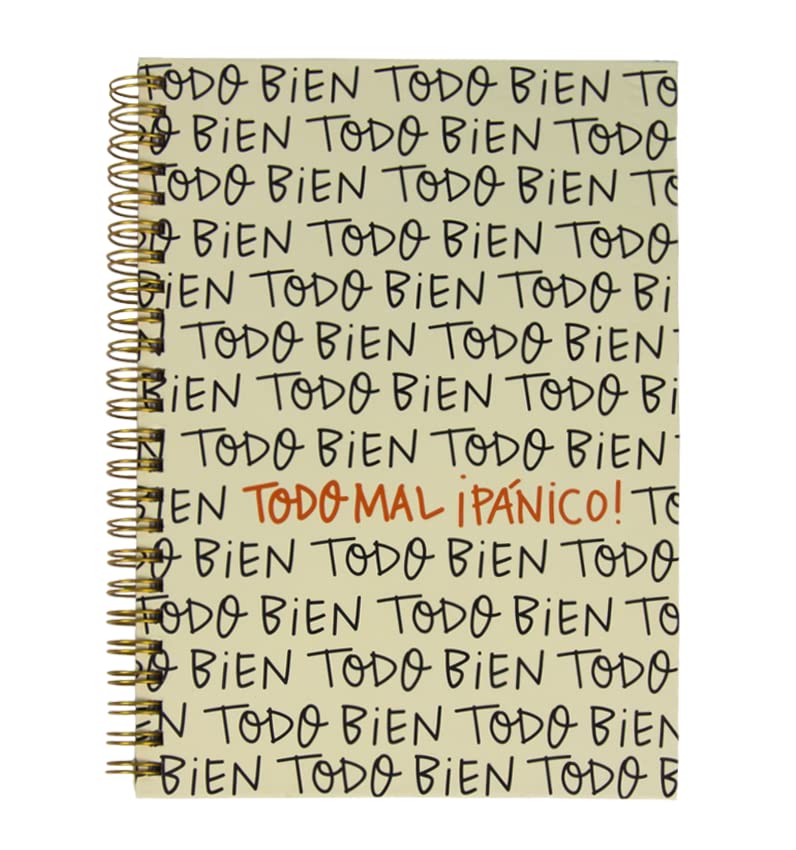 TODO BiEN TODO BiEN TO
DO BiEN TODO BiEN TODO
TODO BiEN TODO BiEN TO
DO BiEN TODO BiEN TODO
BiEN TODO BiEN TODO Bi
N TODO BiEN TODO BiEN
BiEN TODO BiEN TODO Bi
N TODO BiEN TODO BiEN
BiEN TODO MAL ¡PÁNiCO! TO
DO BiEN TODO BiEN TODO
TODO BiEN TODO BiEN TO
DO BiEN TODO BiEN TODO
EN TODO BiEN TODO BiEN
BiEN TODO BiEN TODO B